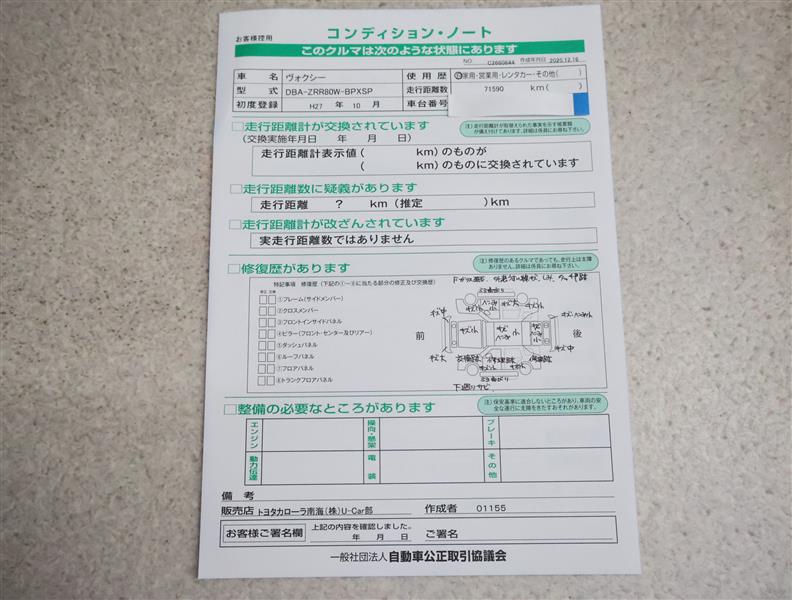 お客様控用
コンディション・ノート
このクルマは次のような状態にあります
NO C2660844 作成年月日 2025.12.16
車名 ヴォクシー 使用歴 自家用・営業用・レンタカー・その他( )
型式 DBA-ZRR80W-BPXSP 走行距離数 71590 km( )
初度登録 H27 年 10 月 車台番号
□走行距離計が交換されています
(注)走行距離計が取替えられた事実を示す帳票類が備え付けてあります。詳細は係員にお尋ね下さい。
(交換実施年月日 年 月 日)
走行距離計表示値( km)のものが
( km)のものに交換されています
□走行距離数に疑義があります
走行距離 ? km(推定 )km
□走行距離計が改ざんされています
実走行距離数ではありません
□修復歴があります
(注)修復歴のあるクルマであっても、走行上は支障ありません。詳細は係員にお尋ね下さい。
特記事項 修復歴(下記の①~⑧に当たる部分の修正及び交換歴)
修正 交換
①フレーム(サイドメンバー)
②クロスメンバー
③フロントインサイドパネル
④ピラー(フロント・センター及びリアー)
⑤ダッシュパネル
⑥ルーフパネル
⑦フロアパネル
⑧トランクフロアパネル
前 後
キズ中
キズ大
キズ中
下廻りサビ
□整備の必要なところがあります
(注)保安基準に適合しないところがあり、車両の安全な運行に支障をきたすおそれがあります。
エンジン 操向・懸架 ブレーキ
動力伝達 電装 その他
備考
販売店 トヨタカローラ南海(株)U-Car部 作成者 01155
お客様ご署名欄 上記の内容を確認しました。
年 月 日 ご署名
一般社団法人 自動車公正取引協議会